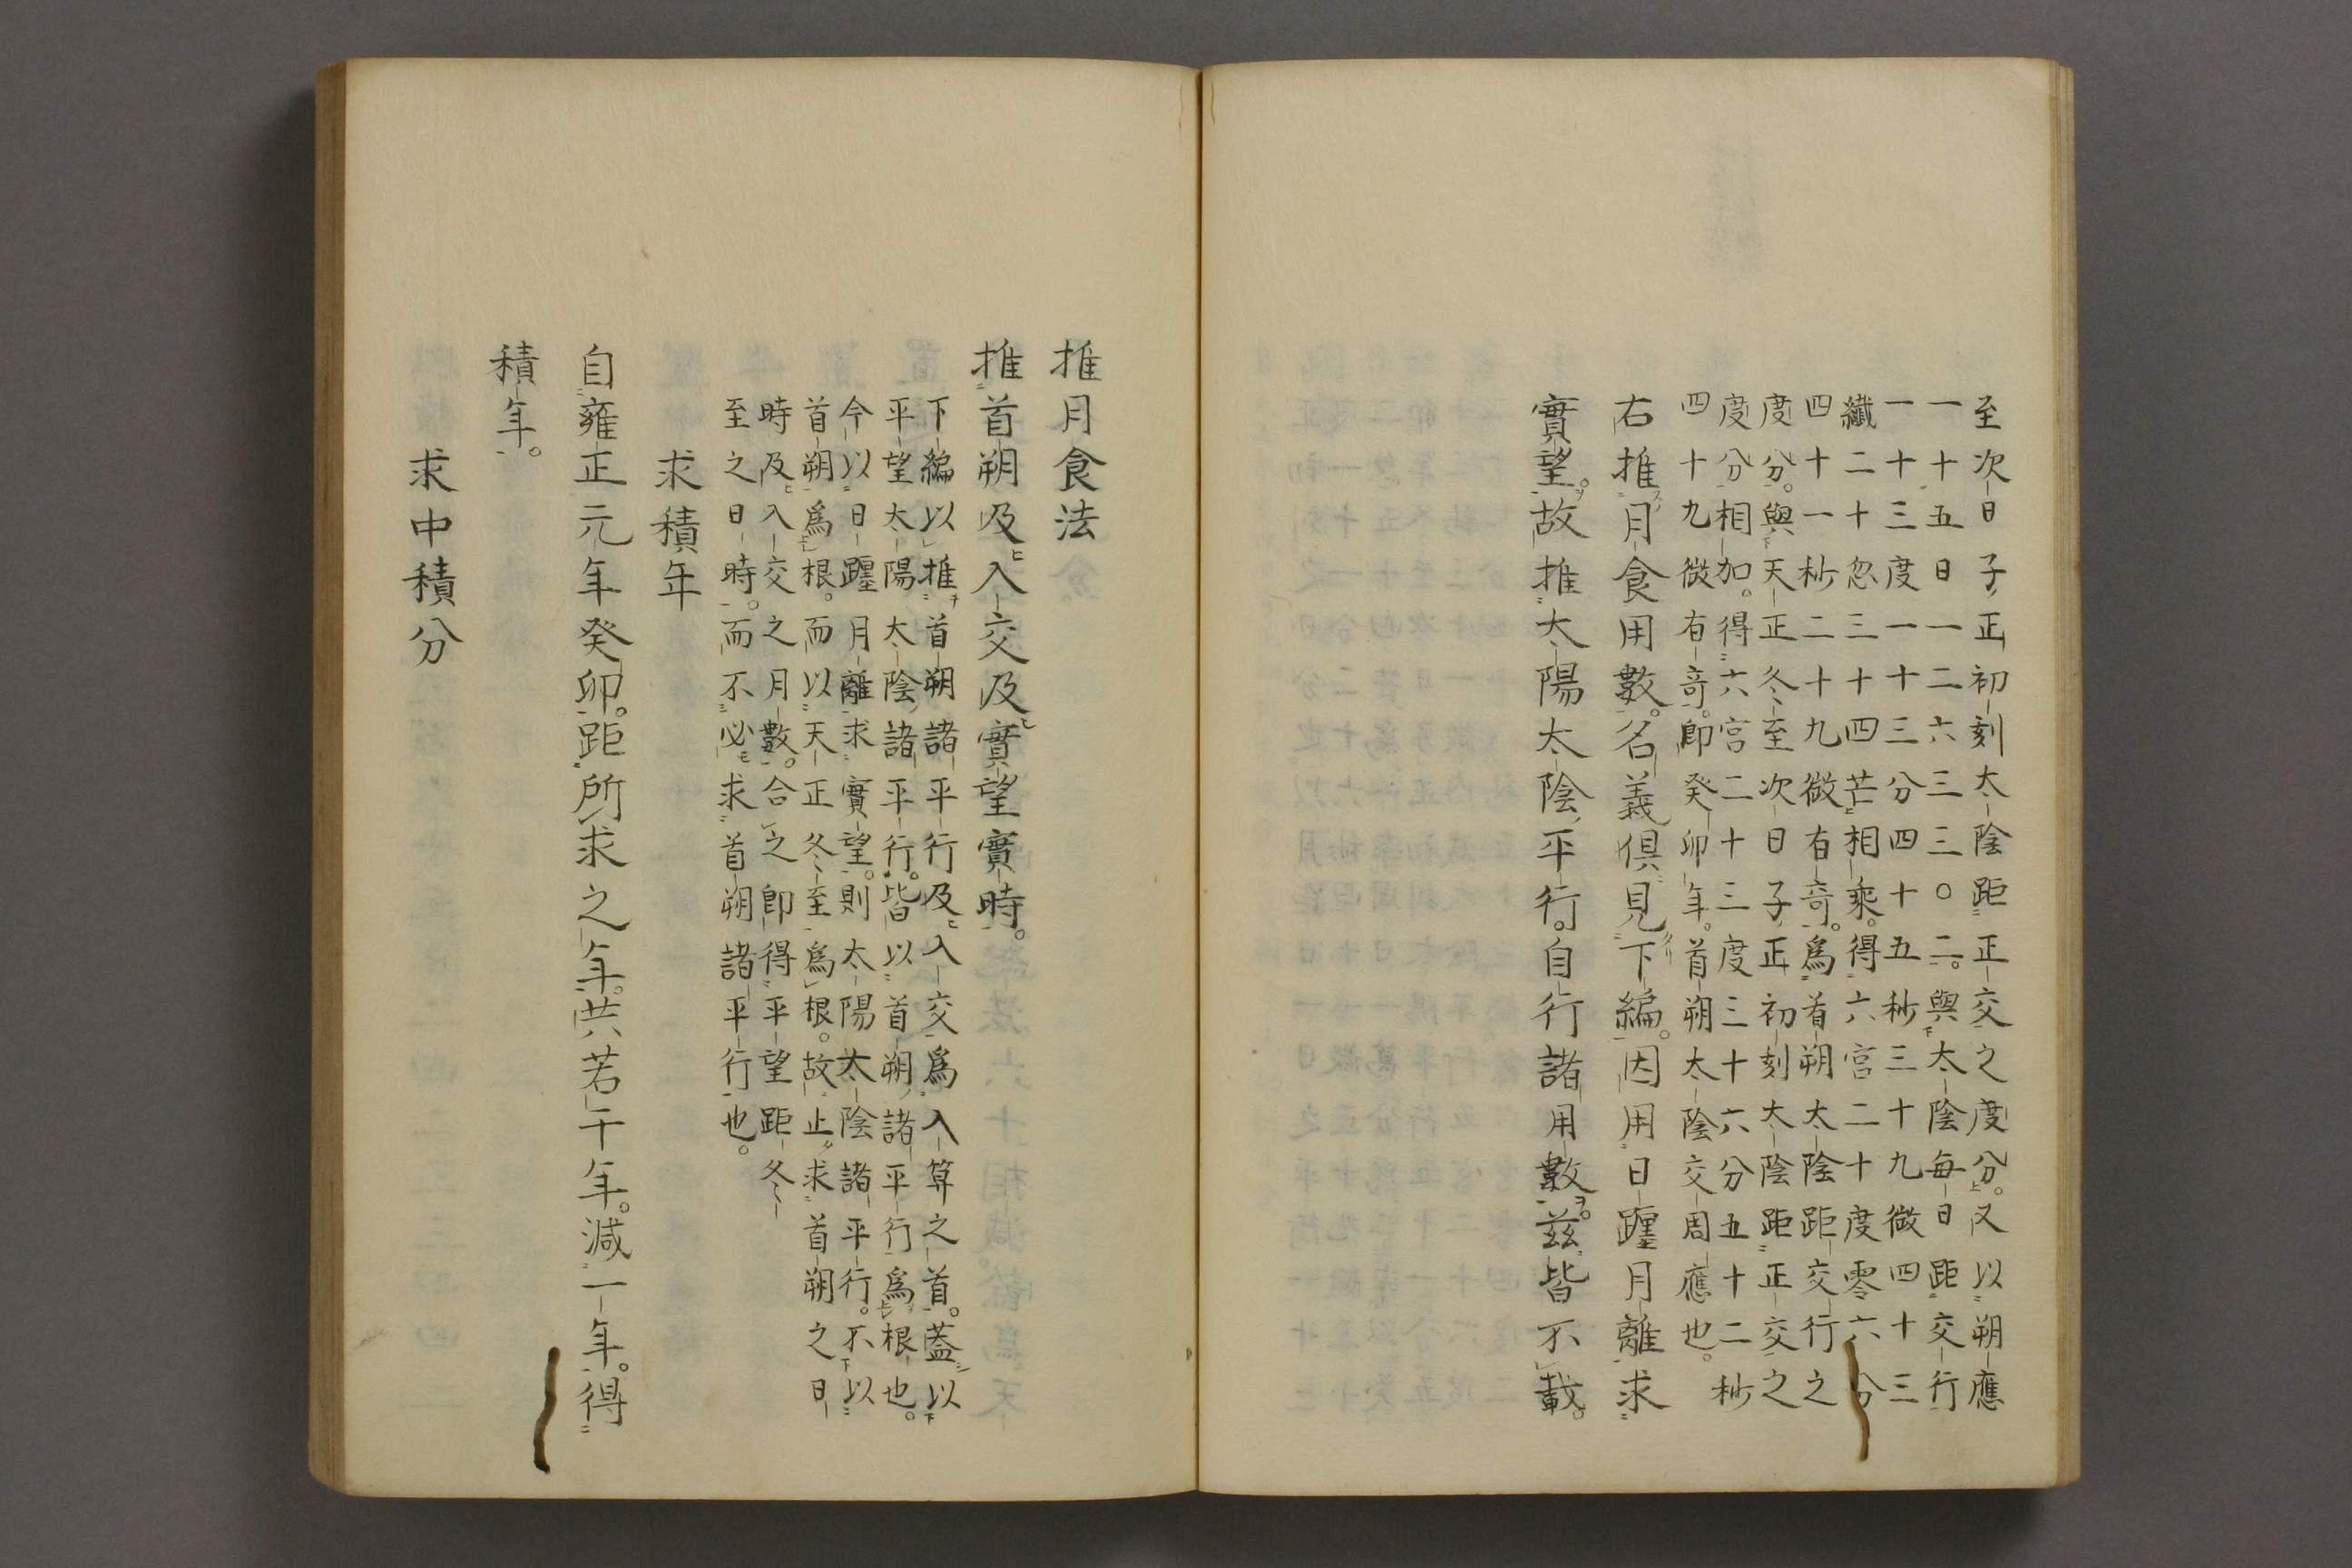 至次日子正初刻太陰距正交之度分又以朔應
一十五日一二六三三〇二與太陰每日距交行
一十三度一十三分四十五秒三十九微四十三
纖二十忽三十四芒相乘得六宮二十度零六分
四十一秒二十九微有奇爲首朔太陰距交行之
度分與天正冬至次日子正初刻太陰距正交之
度分相加得六宮二十三度三十六分五十二秒
四十九微有奇即癸卯年首朔太陰交周應也
右推月食用數名義俱見下編因用日躔月離求
實望故推太陽太陰平行自行諸用數茲皆不載
推月食法
推首朔及入交及實望實時
下編以推首朔諸平行及入交爲入算之首蓋以
平望太陽太陰諸平行皆以首朔諸平行爲根也
今以日躔月離求實望則太陽太陰諸平行不以
首朔爲根而以天正冬至爲根故止求首朔之日
時及入交之月數合之即得平望距冬
至之日時而不必求首朔諸平行也
求積年
自雍正元年癸卯距所求之年共若干年減一年得
積年
求中積分